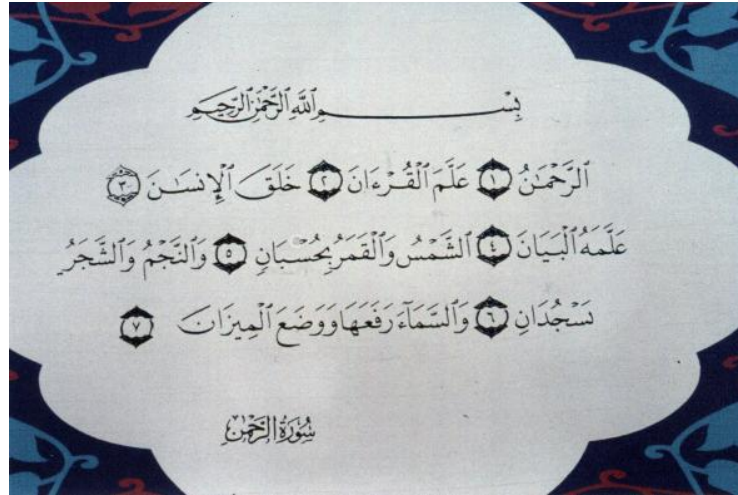 بِسْمِ ٱللَّهِ ٱلرَّحْمَٰنِ ٱلرَّحِيمِ
ٱلرَّحْمَٰنُ ١ عَلَّمَ ٱلْقُرْءَانَ ٢ خَلَقَ ٱلْإِنسَٰنَ ٣
عَلَّمَهُ ٱلْبَيَانَ ٤ ٱلشَّمْسُ وَٱلْقَمَرُ بِحُسْبَانٍ ٥ وَٱلنَّجْمُ وَٱلشَّجَرُ
يَسْجُدَانِ ٦ وَٱلسَّمَآءَ رَفَعَهَا وَوَضَعَ ٱلْمِيزَانَ ٧
سُورَةُ الرَّحْمَٰنِ